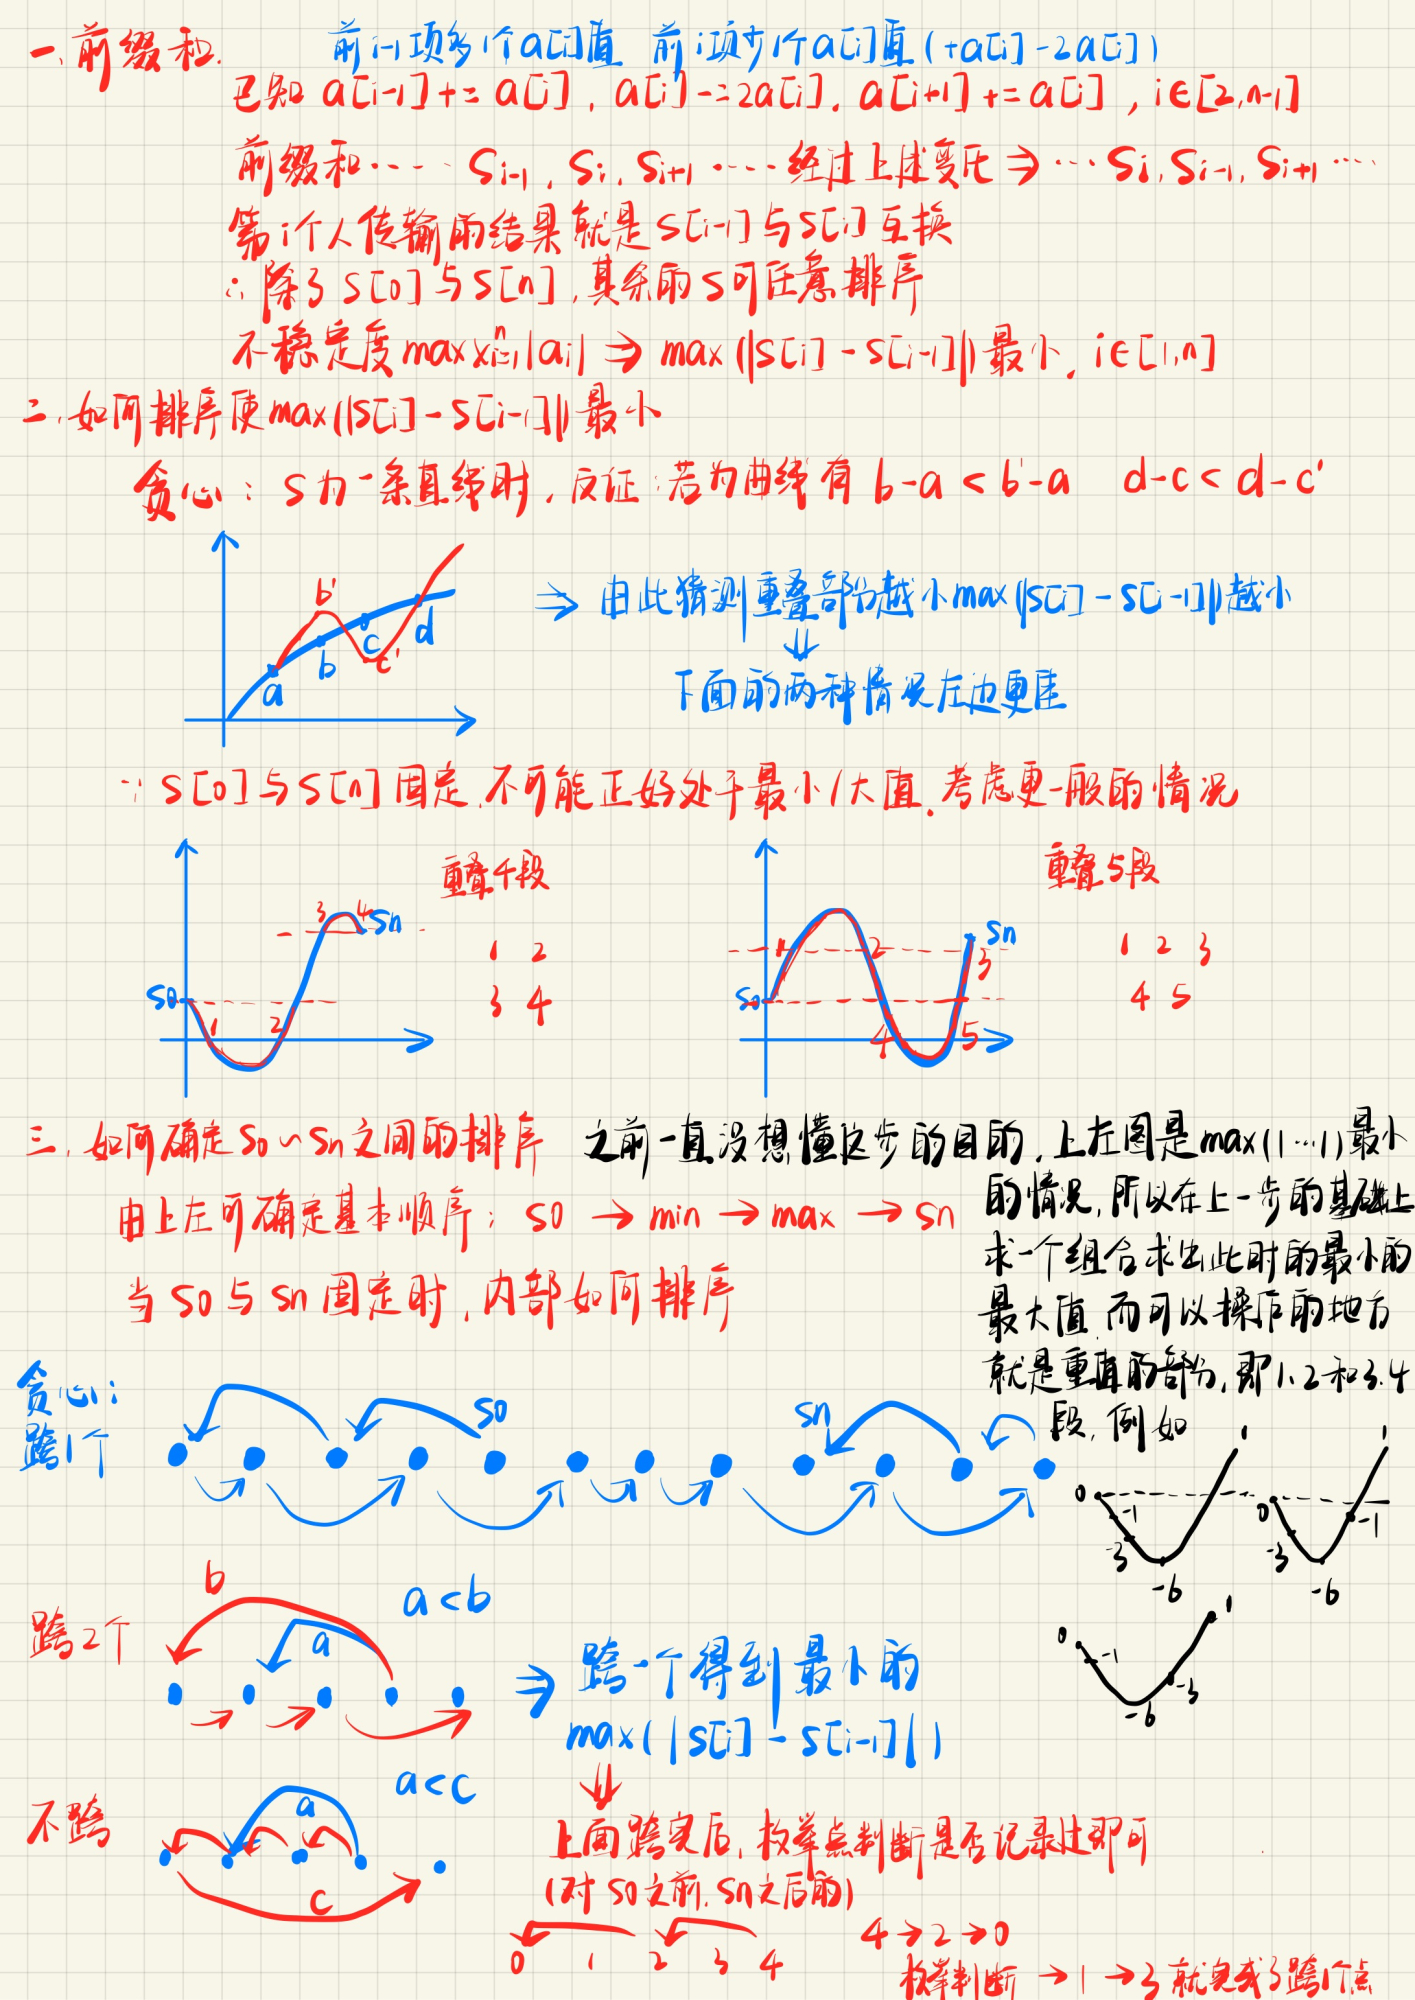 一、前缀和.
前i-1项多1个a[i]值 前i项少1个a[i]值(+a[i]-2a[i])
已知 a[i-1]+=a[i], a[i]-=2a[i], a[i+1]+=a[i], i∈[2,n-1]
前缀和…… Si-1, Si, Si+1 ……经过上述变化⇒…Si, Si-1, Si+1…
第i个人传输的结果就是S[i-1]与S[i]互换
∴除了S[0]与S[n],其余的S可任意排序
不稳定度maxxⁿi=1|ai| ⇒ max(|S[i]-S[i-1]|)最小, i∈[1,n]
二.如何排序使max(|S[i]-S[i-1]|)最小
贪心: S为一条直线时,反证:若为曲线有 b-a<b'-a d-c<d-c'
b'
a
b
c
c'
d
⇒ 由此猜测重叠部分越小max(|S[i]-S[i-1]|)越小
⇓
下面的两种情况左边更佳
∵S[0]与S[n]固定,不可能正好处于最小/大值,考虑更一般的情况
重叠4段
1 2
3 4
S0
Sn
1 2
3 4
重叠5段
1 2 3
4 5
S0
Sn
1 2 3
4 5
三.如何确定S0~Sn之间的排序
由上左可确定基本顺序: S0 → min → max → Sn
当S0与Sn固定时,内部如何排序
之前一直没想懂这步的目的,上左图是max(|…|)最小
的情况,所以在上一步的基础上
求一个组合求出此时的最小的
最大值,而可以操作的地方
就是重叠的部分,即1.2和3.4
段,例如
0 -1 -3 -6 1
0 -3 -6 -1 1
0 -1 -6 -3 1
贪心:
跨1个
S0
Sn
跨2个
b
a
a<b
⇒ 跨一个得到最小的
max(|S[i]-S[i-1]|)
⇓
不跨
a
c
a<c
上面跨完后,枚举点判断是否记录过即可
(对S0之前,Sn之后的)
0 1 2 3 4
4→2→0
枚举判断→1→3就完成了跨1个点